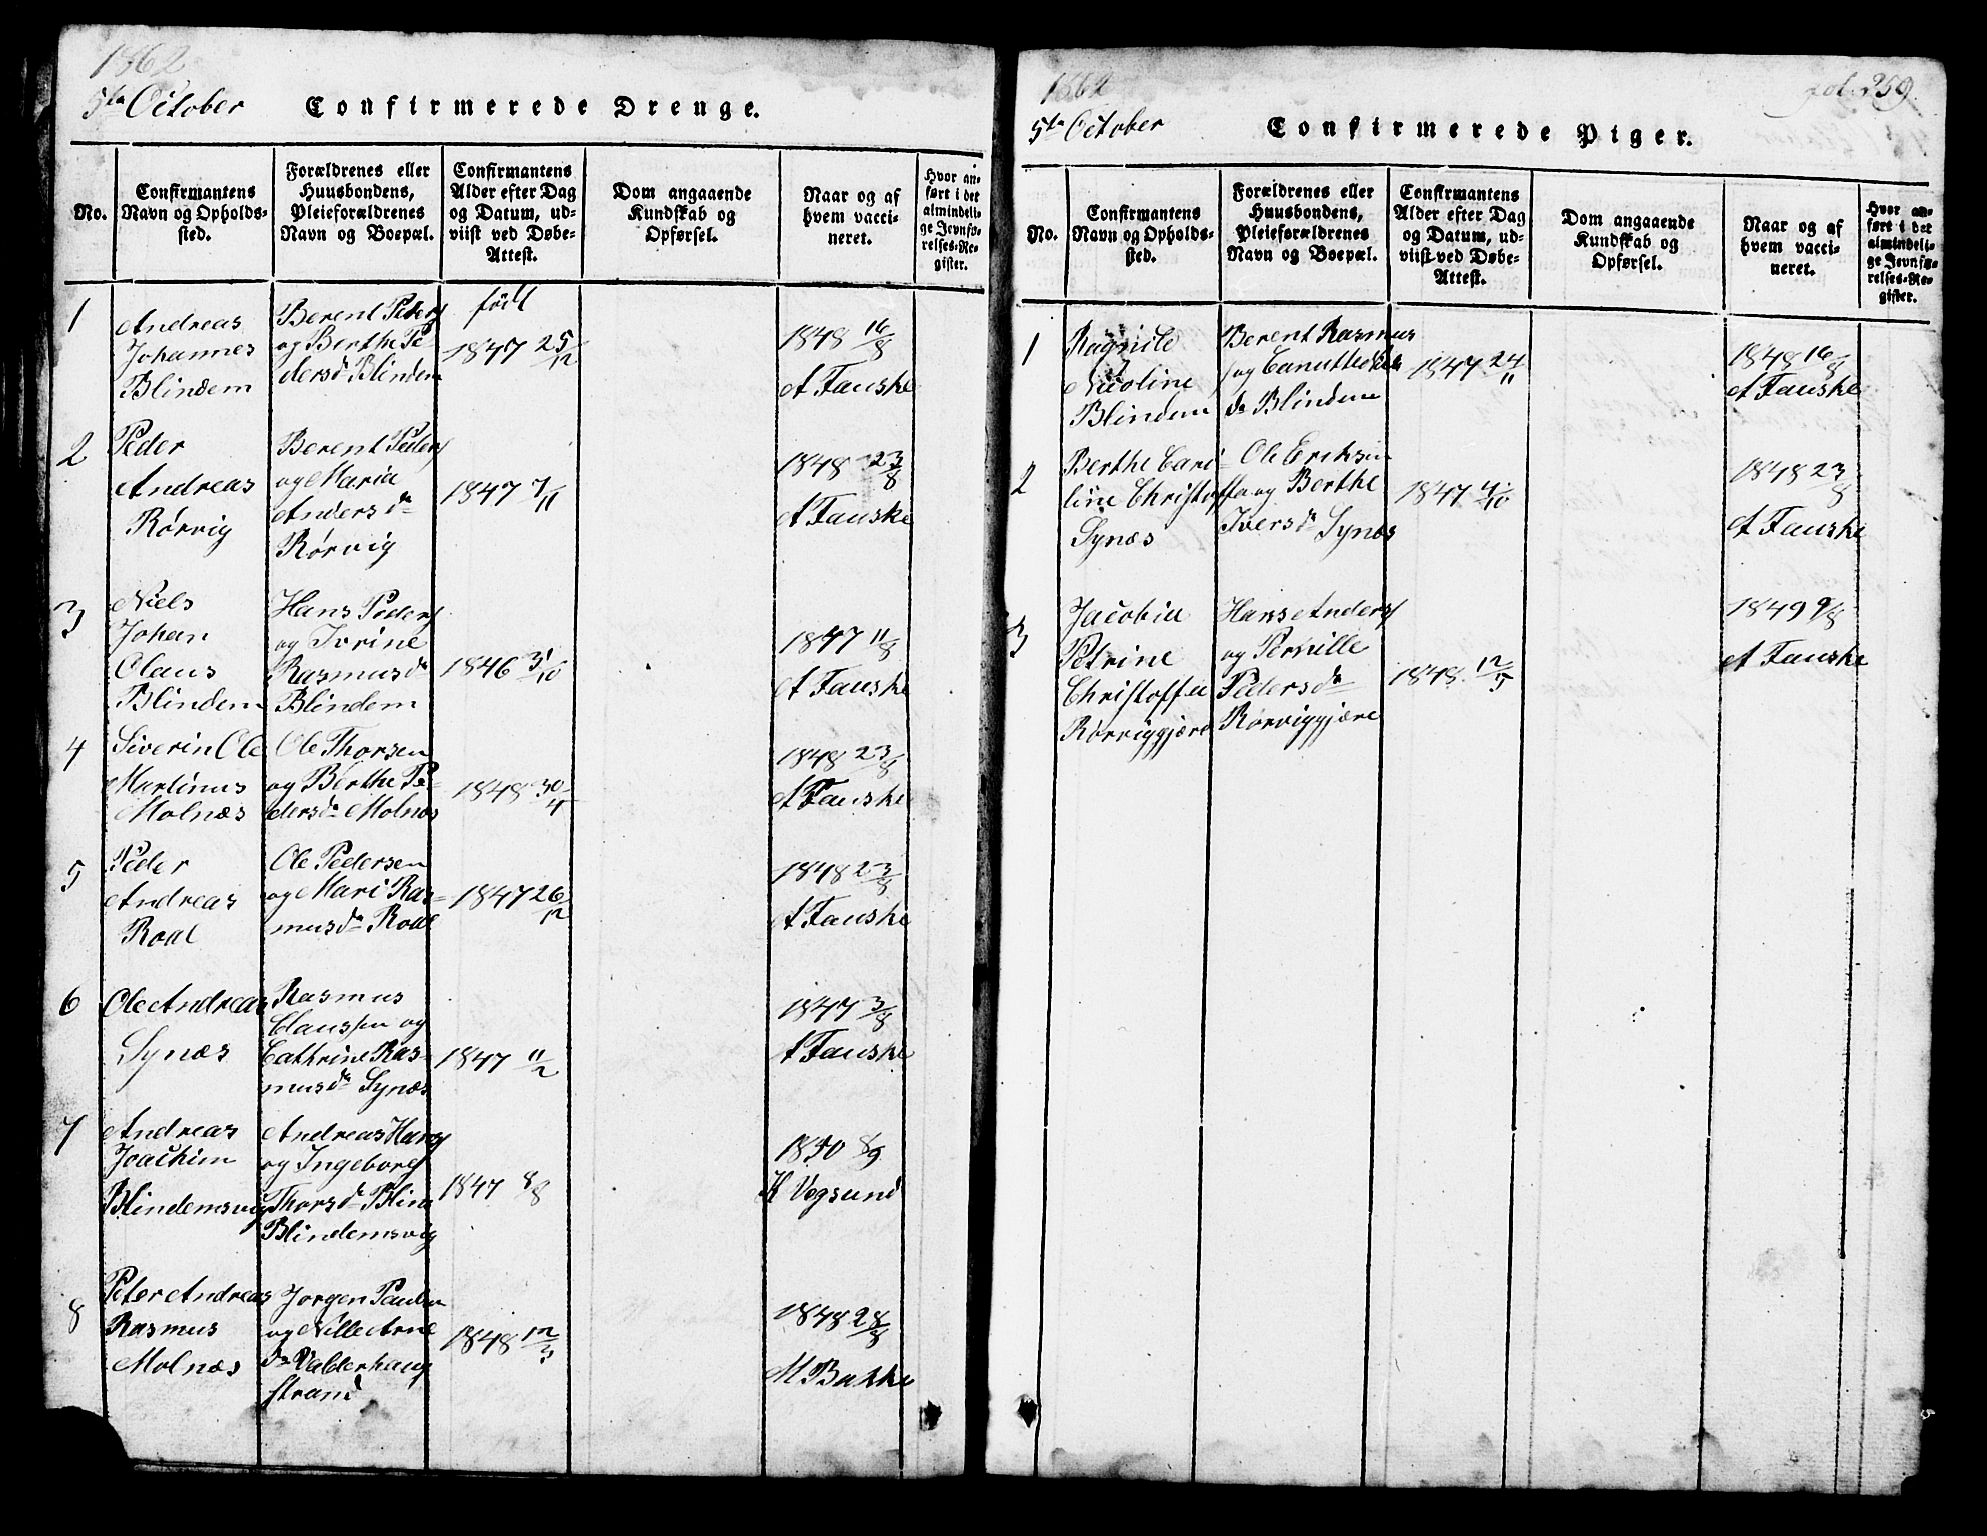 1862
5te October Confirmerede Drenge.
No.
Confirmantens
Navn og Opholds-
sted.
Forældrenes eller
Huusbondens,
Pleieforældrenes
Navn og Boepæl.
Confirmantens
Alder efter Dag
og Datum, ud-
viist ved Døbe-
Attest.
Dom angaaende
Kundskab og
Opførsel.
Naar og af
hvem vacci-
neret.
Hvor an-
ført i det
almindeli-
ge Jevnfø-
relses-Re-
gister.
1
Andreas
Johannes
Blindem
Berent Peders
og Berthe Pe
dersd Blindem
født
1847 25/12
1848 16/8
A Fauske
2
Peder
Andreas
Rørvig
Berent Peders
og Maria
Andersda
Rørvig
1847 7/11
1848 23/8
A Fauske
3
Niels
Johan
Olaus
Blindem
Hans Peders
og Ivrine
Rasmusda
Blindem
1846 31/10
1847 11/8
A Fauske
4
Siverin Ole
Martinus
Molnæs
Ole Thorsen
og Berthe Pe-
dersda Molnæs
1848 30/4
1848 23/8
A Fauske
5
Peder
Andreas
Roal
Ole Pedersen
og Mari Ras-
musda Roal
1847 26/12
1848 23/8
A Fauske
6
Ole Andreas
Synæs
Rasmus
Claussen og
Cathrine Ras-
musda Synæs
1847 11/2
1847 3/8
A Fauske
7
Andreas
Joachim
Blindemsvig
Andreas Hans
og Ingeborg
Thorsda Blin
Blindemsvig
1847 8/8
1850 8/9
K Vegsund
8
Peter Andreas
Rasmus
Molnæs
Jørgen Paulsen
og Nille Arne
da Valderhaug
strand
1848 12/3
1848 28/8
M Bakke
1862 fol. 259.
5te October Confirmerede Piger.
No.
Confirmantens
Navn og Opholds-
sted.
Forældrenes eller
Huusbondens,
Pleieforældrenes
Navn og Boepæl.
Confirmantens
Alder efter Dag
og Datum, ud-
viist ved Døbe-
Attest.
Dom angaaende
Kundskab og
Opførsel.
Naar og af
hvem vacci-
neret.
Hvor an-
ført i det
almindeli-
ge Jevnfø-
relses-Re-
gister.
1
Ragnild
Nicoline
Blindem
Berent Rasmus
s og
da Blindem
1847 24/11
1848 16/8
A Fauske
2
Berthe Carö-
line Christoffa
Synæs
Ole Eriksen
og Berthe
Iversda Synæs
1847 4/10
1848 23/8
A Fauske
3
Jacobia
Petrine
Christoffa
Rørviggjære
Hans Anders
og Pernille
Pedersda
Rørviggjære
1848 12/5
1849 9/8
A Fauske